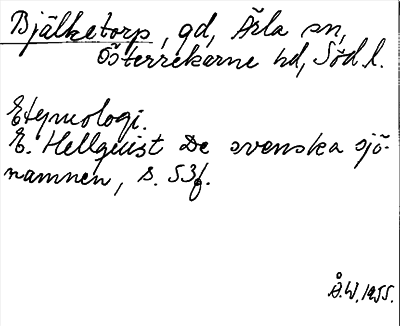 Bjälketorp, gd, Ärla sn,
Österrekarne hd, Söd l.
Etymologi.
E. Hellquist De svenska sjö-
namnen, s. 53f.
Å.W. 1955.